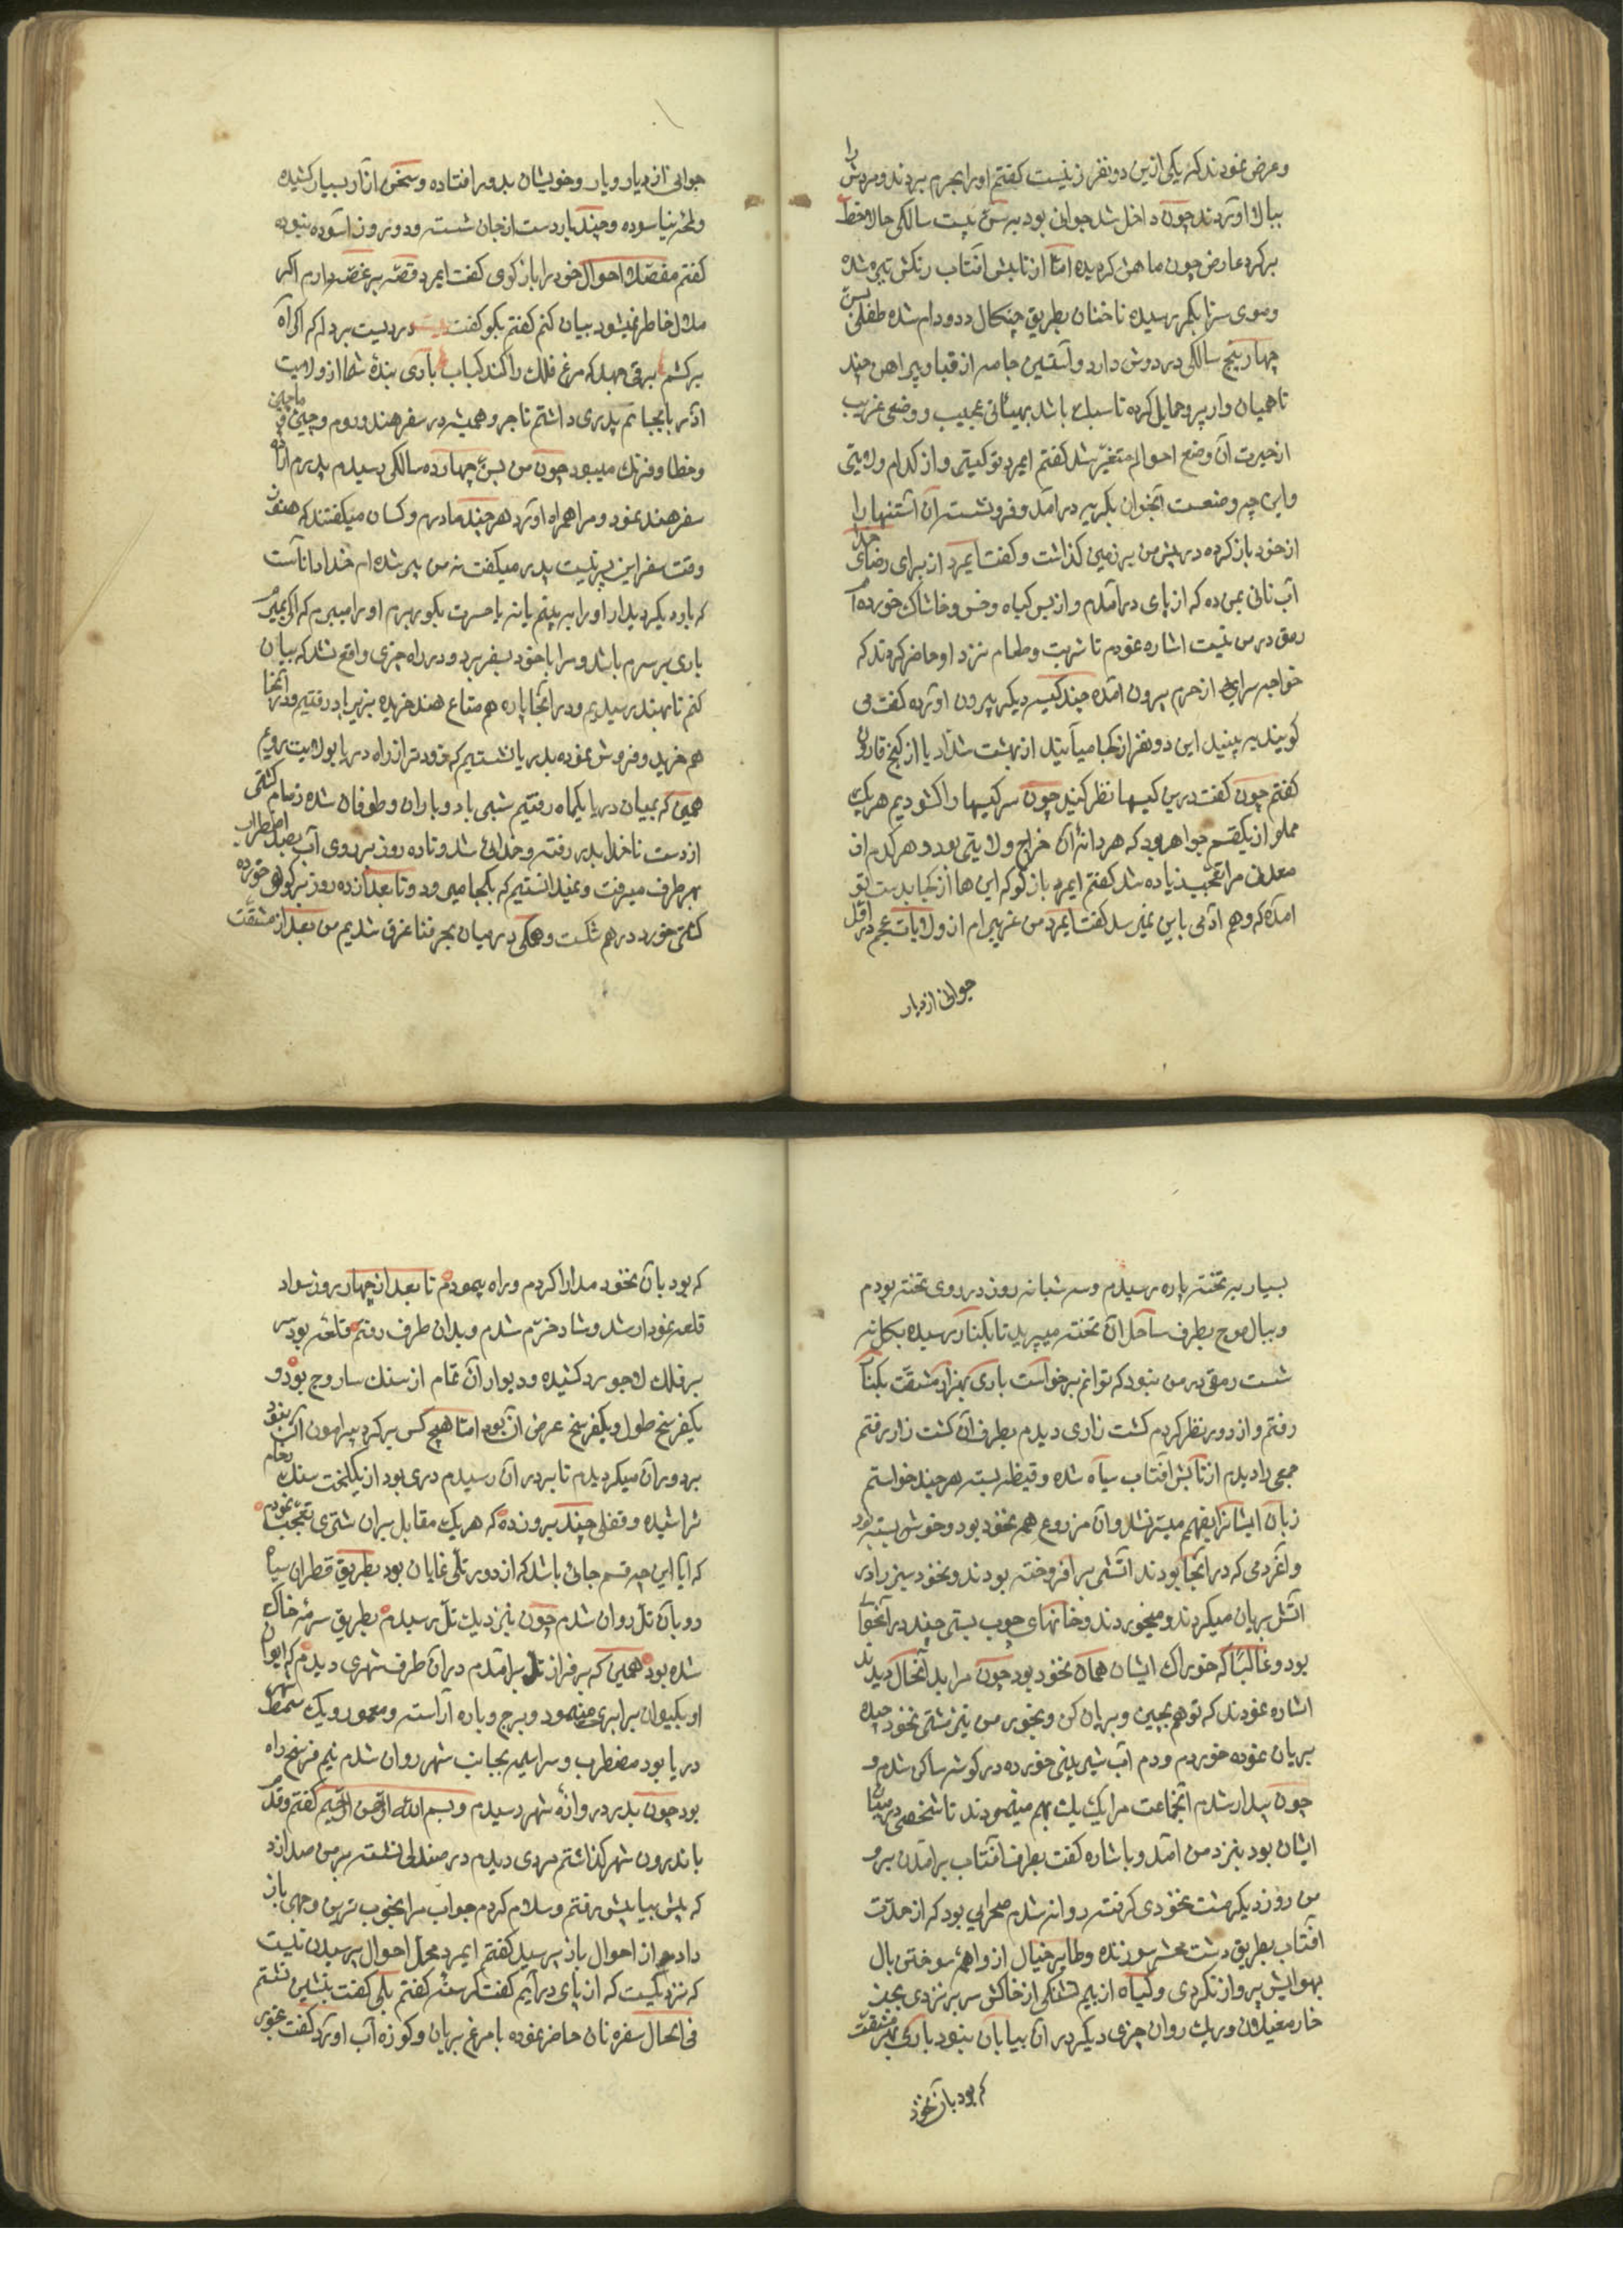 وعرض نمودند که یکی ازین دو نفر زنیست کفتم اورا بحرم بردند ومردش را
ببالا اوردند چون داخل شد جوانی بود بسن بیست سالکی حالا خط
برکرد عارض چون ماهش کردیده امّا از تابش افتاب رنکش تیره شده
وموی سرتا بکمر رسیده ناخنان بطریق چنکال دد ودام شده طفلی بسن
چهار پنج سالکی در دوش دارد وآستین جامه از قبا وپیراهن چند
تا همیان وار پر وحمایل کرده تا سبک باشد بهیئاتی عجیب ووضعی غریب
از حیرت آن وضع احوالم متغیّر شد کفتم ایمرد تو کیستی واز کدام ولایتی
واین چه وضعست آنجوان بکریه درامد وفرو نشست آن آستنیها را
از خود باز کرده در پیش من بر زمین کذاشت وکفت ایمرد از برای رضای خدا
آب نانی بمن ده که از پای درآمدم واز بس کیاه وخس وخاشاک خورده ام
رمق در من نیست اشاره نمودم تا شربت وطعام نزد او حاضر کردند که
خواجه سرایی از حرم بیرون آمده چند کیسه دیکر بیرون اوئرده کفت می
کویند به بینید این دو نفر از کجا میآیند از بهشت شدّاد یا از کنج قارون
کفتم چون کفت درین کیسها نظر کنید چون سر کیسها را کشودیم هر یک
مملو از یکقسم جواهر بود که هر دانهٔ آن خراج ولایتی بود وهر کدام از
معدنی مرا تعجّب زیاده شد کفتم ایمرد باز کو که این ها از کجا بدست تو
امده که وهم ادمی باین نمیرسد کفت ایمرد من غریبم از ولایات عجم در اوّل
جوانی از دیار
جوانی از دیار ویار وخویشان بدور افتاده وسختی آزار بسیار کشیده
ولحظه نیاسوده وچند بار دست از جان شسته ودو روز آسوده نبوده
کفتم مفصّل احوال خود را باز کوی کفت ایمرد قصّه پر غصّه دارم اکر
ملال خاطر نمیشود بیان کنم کفتم بکو کفت دردیست بر دلم که اکر آه
برکشم برقی جهد که مرغ فلک را کند کباب باری بندهٔ شما از ولایت
اذربایجانم پدری داشتم تاجر وهمیشه در سفر هند وروم وچین وماچین
وخطا وفرنک میبود چون من بسن چهارده سالکی رسیدم پدرم ارادهٔ
سفر هند نمود ومرا همراه اورد هر چند مادرم وکسان میکفتند که هنوز
وقت سفر این پسر نیست پدر میکفت نه من پیر شده ام خدا داناست
که بار دیکر دیدار اورا به بینم یا نه با حسرت بکور برم اورا میبرم که اکر بمیرم
باری بر سرم باشد ومرا با خود بسفر برد ودر راه چیزی واقع نشد که بیان
کنم تا بهند رسیدیم ودر آنجا پاره هم متاع هند خریده بزیرباد رفتیم ودر آنجا
هم خرید وفروش نموده بدریا نشستیم که زودتر از راه دریا بولایت رویم
همین که بمیان دریا یکماه رفتیم شبی باد وباران وطوفان شده زمام کشتی
از دست ناخدا بدر رفته وخدائی شد وتا ده روز بر روی آب بصد اضطراب
بهر طرف میرفت ونمیدانستیم که بکجا میرود وتا بعد از ده روز بر کوهی خورده
کشتی خورد درهم شکست وهمکی در میان بحر فنا غرق شدیم من بعد از مشقّت
بسیار بر تخته پاره رسیدم وسه شبانه روز در روی تخته بودم
وببال موج بطرف ساحل آن تخته میپرید تا بکنار رسیده بکل نه
شست رمقی در من نبود که توانم برخواست باری بهزار مشقّت بکنار
رفتم واز دور نظر کردم کشت زاری دیدم بطرف آن کشت زار رفتم
جمعی را دیدم از تابش افتاب سیاه شده وقیظه بسته هر چند خواستم
زبان ایشانرا بفهم میسّر نشد وآن مزروع هم نخود بود وخوش بسته بود
وآنمردمی که در آنجا بودند آتشی برافروخته بودند ونخود سبز را در
آتش بریان میکردند ومیخوردند وخانهای چوب بستی چند در آنحوالی
بود وغالبًا که خوراک ایشان همان نخود بود چون مرا بدانحال دیدند
اشاره نمودند که تو هم بچین وبریان کن وبخور من نیز مشتی نخود چیده
بریان نموده خوردم ودم آب شیرینی خورده در کوشه ساکن شدم و
چون بیدار شدم آنجماعت مرا یک یک بهم مینمودند تا شخصی در میان
ایشان بود بنزد من آمد وباشاره کفت بطرف آفتاب برآمدن برو
من روز دیکر مشت نخودی کرفته روانه شدم صحرایی بود که از حدّت
افتاب بطریق دشت محشر سوزنده وطایر خیال از واهمهٔ سوختن بال
بهوایش پرواز نکردی وکیاه از بیم تشنکی از خاکش سر بر نزدی بجز
خار مغیلان وریک روان چیزی دیکر در آن بیابان نبود باری بهر مشقّت
که بود بآن نخود
که بود بآن نخود مدارا کردم وراه پیمودم تا بعد از چهار روز سواد
قلعه نمودار شد وشاد وخرّم شدم وبدان طرف رفتم قلعهٔ بود سر
بر فلک لاجورد کشیده ودیوار آن تمام از سنک ساروج بود و
یکفرسخ طول ویکفرسخ عرض آن بود امّا هیچ کس بر کرد پیرامون آن نبود
بر دور آن میکردیدم تا بر در آن رسیدم دری بود از یکلخت سنک رخام
تراشیده وقفلی چند برو زده که هر یک مقابل سران شتری تعجّب نمودم
که ایا این چه قسم جائی باشد که از دور تلّی نمایان بود بطریق قطران سیاه
رو بآن تل روان شدم چون بنزدیک تل رسیدم بطریق سرمه خاک
شده بود همین که بر فراز تل برآمدم در آن طرف شهری دیدم که ایوان
او بکیوان برابری مینمود وبرج وباره آراسته ومعمور ویک سمت شهر
دریا بود مضطرب وسراسیمه بجانب شهر روان شدم نیم فرسخ راه
بود چون بدر دروازهٔ شهر رسیدم وبسم الله الرحمن الرحیم کفتم وقدم
باندرون شهر کذاشتم مردی دیدم در صندلی نشسته بر من صدا زد
که پیش بیا پیش رفتم وسلام کردم جواب مرا بخوب ترین وجهی باز
داد واز احوال باز پرسید کفتم ایمرد محل احوال پرسیدن نیست
که نزدیکست که از پای درآیم کفت کرسنهٔ کفتم بلی کفت بنشین نشستم
فی الحال سفره نان حاضر نموده با مرغ بریان وکوزه آب اورد کفت بخور